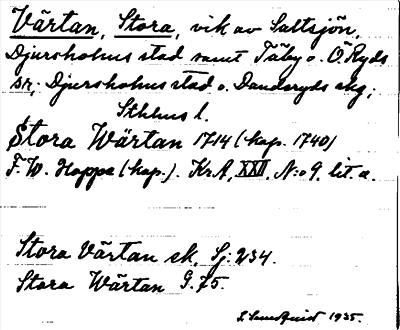 Värtan, Stora, vik av Saltsjön,
Djursholms stad samt Täby o. Ö Ryds
sn; Djursholms stad o. Danderyds skg;
Sthlms l.
Stora Wärtan 1714 (kop. 1740)
F. W. Hoppe (kop.). KrA, XXII. N:o 9. lit. a.
Stora Värtan sk, Sj: 234.
Stora Wärtan G. 75.
1935.